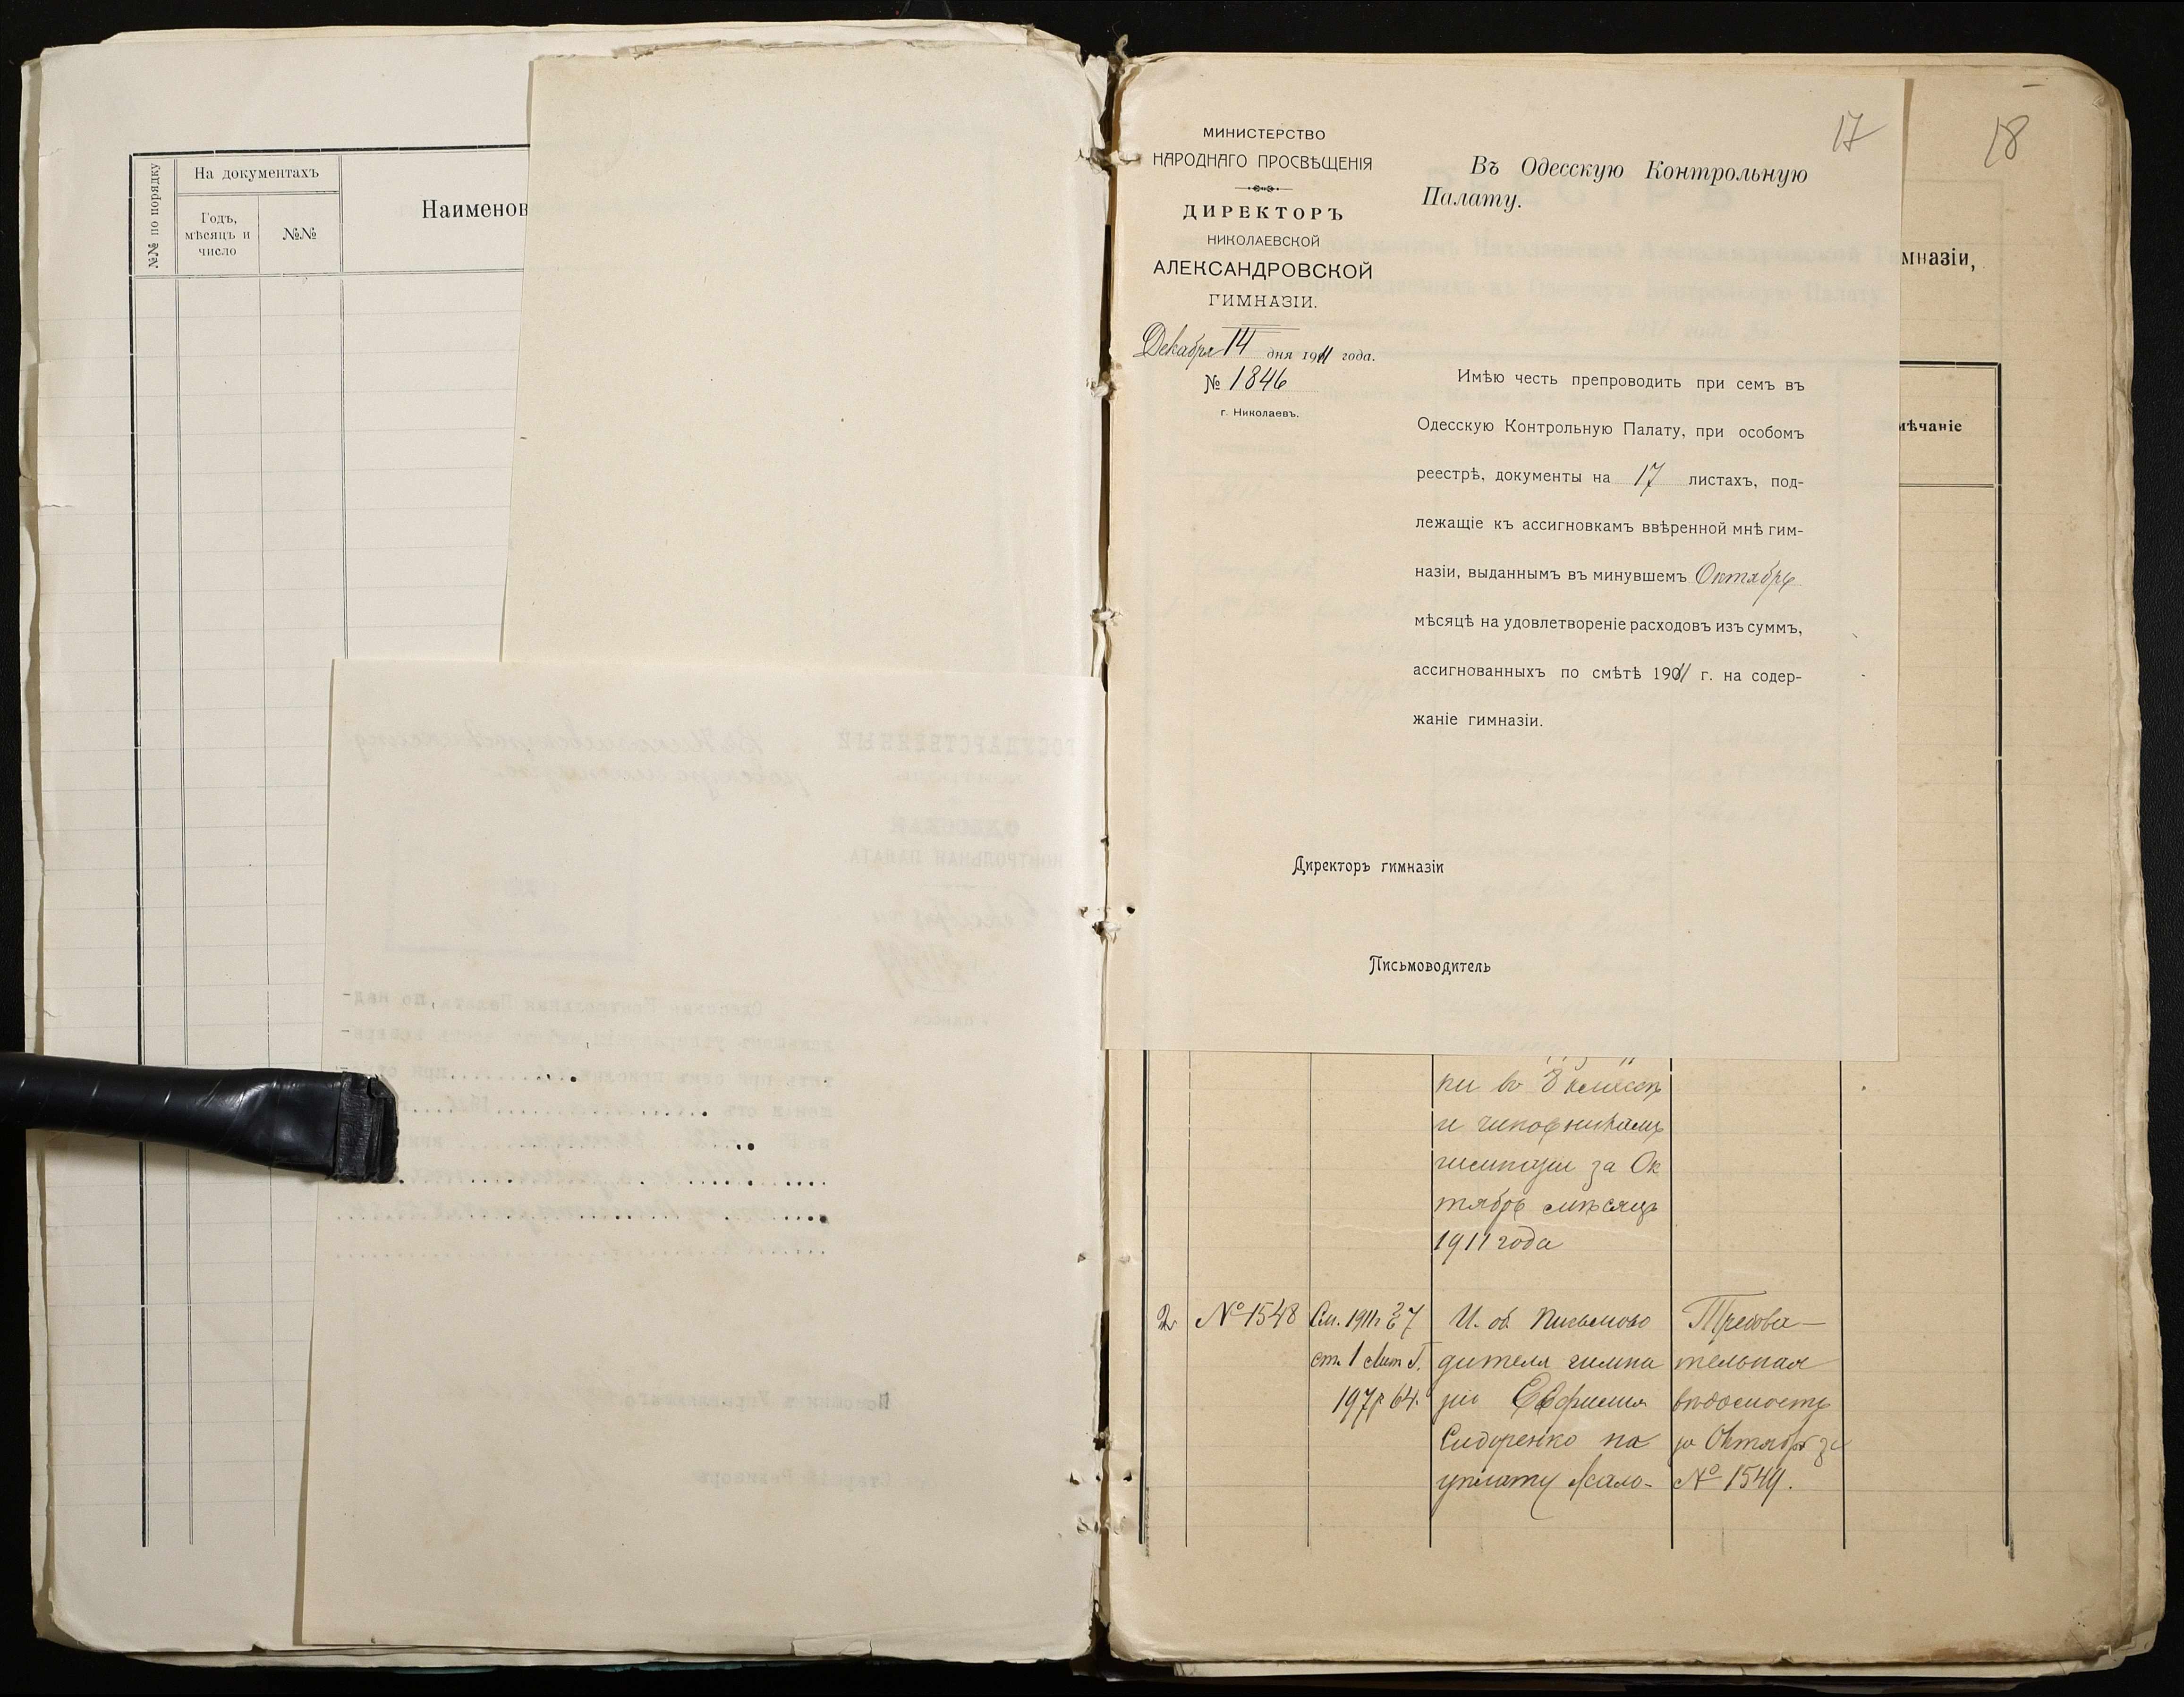 №№ по порядку
На документахъ
Годъ,
мѣсяцъ и
число
№№
Наименов
17
18
МИНИСТЕРСТВО
НАРОДНАГО ПРОСВѢЩЕНІЯ
ДИРЕКТОРЪ
НИКОЛАЕВСКОЙ
АЛЕКСАНДРОВСКОЙ
ГИМНАЗІИ.
Декабря 14 дня 1911 года.
№ 1846
г. Николаевъ.
Въ Одесскую Контрольную
Палату.
Имѣю честь препроводить при семъ въ
Одесскую Контрольную Палату, при особомъ
реестрѣ, документы на 17 листахъ, под-
лежащіе къ ассигновкамъ ввѣренной мнѣ гим-
назіи, выданнымъ въ минувшемъ Октябрѣ
мѣсяцѣ на удовлетвореніе расходовъ изъ суммъ,
ассигнованныхъ по смѣтѣ 1911 г. на содер-
жаніе гимназіи.
Директоръ гимназіи
Письмоводитель
мназіи,
мѣчаніе
ки во 8 классѣ
и чиновникамъ
гимназіи за Ок
тябрь мѣсяцъ
1911 года
2 №1548 См. 1911 г. § 7 И. об. Письмово Требова-
ст. 1 Лит. дителя гимна тельная
197 р. 64 зіи Евфимія вѣдомость
Сидоренко на за Октябрь за
уплату жало- № 1549.